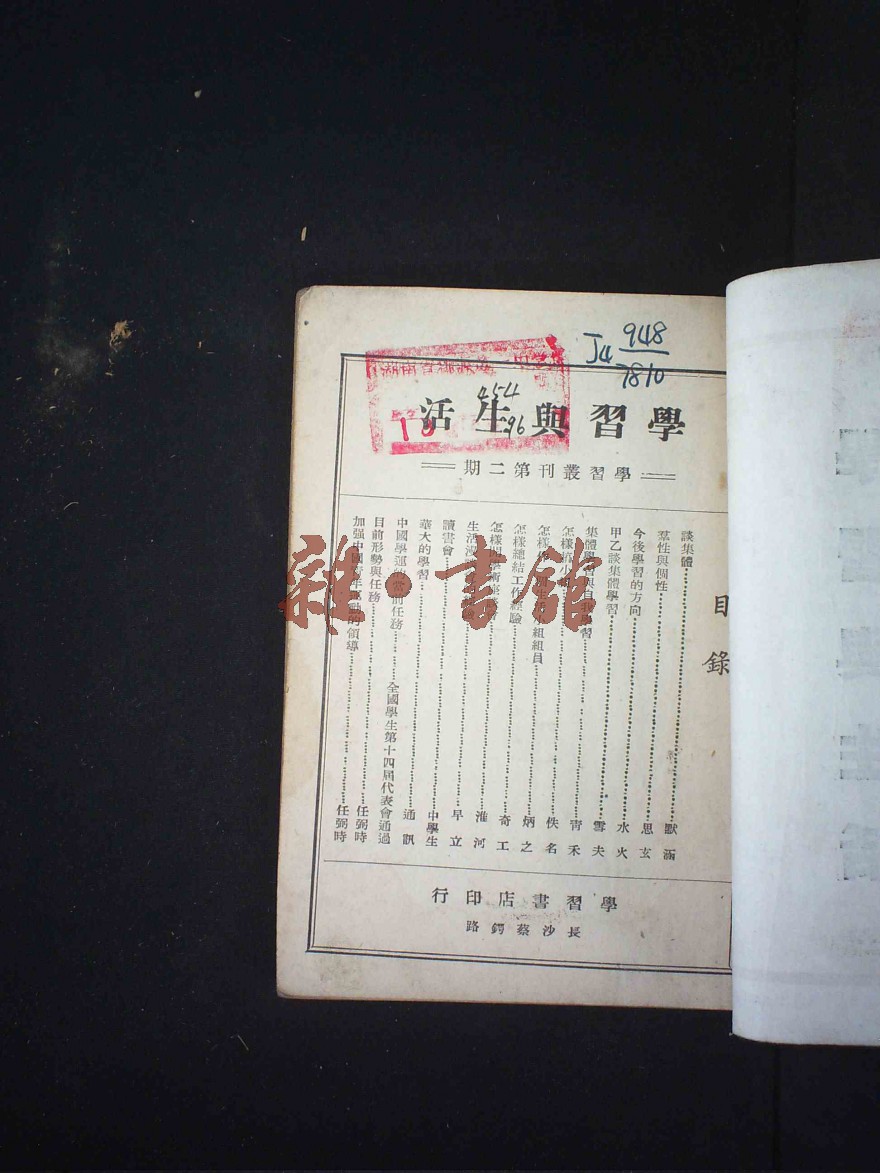 J4 948
7810
454
96
學習與生活
學習叢刊第二期
目錄
談集體 默涵
羣性與個性 思玄
今後學習的方向 水火
甲乙談集體學習 雪夫
集體學習與自我學習 青禾
怎樣 小組 佚名
怎樣 小組組員 炳之
怎樣總結工作經驗 奇工
怎樣 淮河
生活 方向 早立
讀書會 中學生
華大的學習 通訊
中國學運的當前任務 全國學生第十四屆代表會通過
目前形勢與任務 任弼時
加强中國青年運動的領導 任弼時
學習書店印行
長沙蔡鍔路
雜·書館